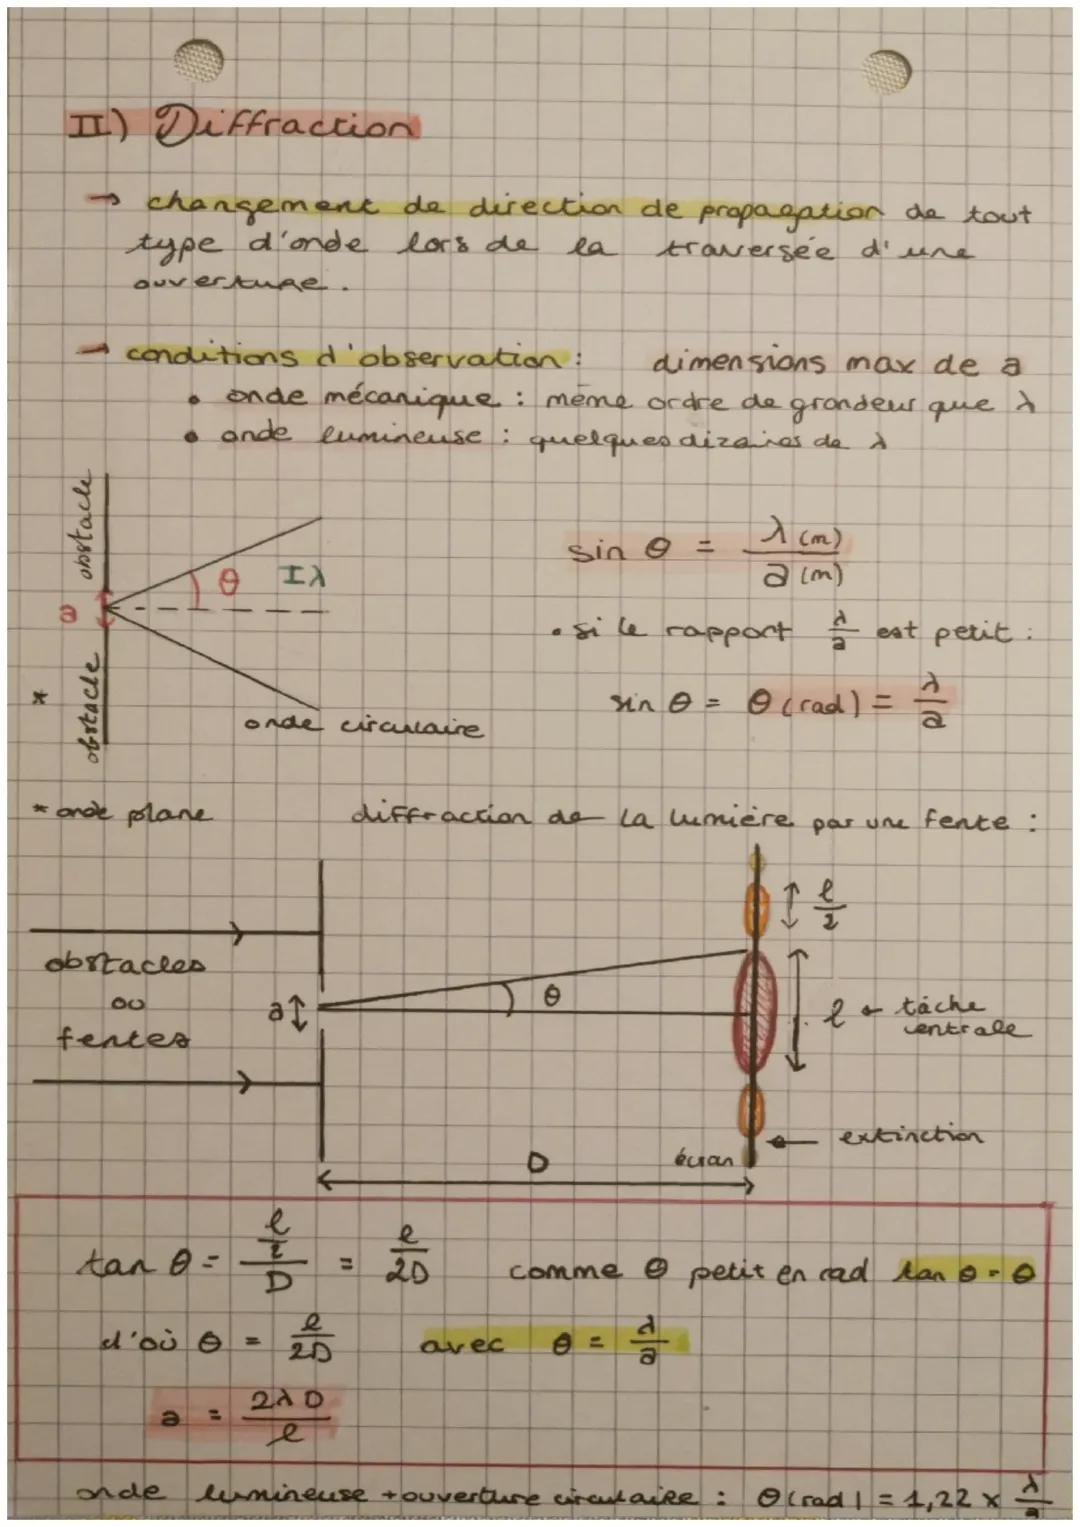 II) Diffraction
→ changement de direction de propagation de tout
type d'onde lors de la traversée d'une
ouverture.
→ conditions d'observation : dimensions max de a
• onde mécanique : même ordre de grandeur que λ
• onde lumineuse : quelques dizaines de λ
obstacle
a
obstacle
*
θ
I λ
onde circulaire
sin θ = λ (m) / a (m)
• si le rapport λ/a est petit :
sin θ = θ (rad) = λ/a
* onde plane
diffraction de la lumière par une fente :
obstacles
ou
fentes
a
θ
l/2
l ← tâche
centrale
← extinction
écran
D
tan θ = (l/2)/D = l/2D comme θ petit en rad tan θ = θ
d'où θ = l/2D avec θ = λ/a
a = 2λD/l
onde lumineuse + ouverture circulaire : θ (rad) = 1,22 × λ/a